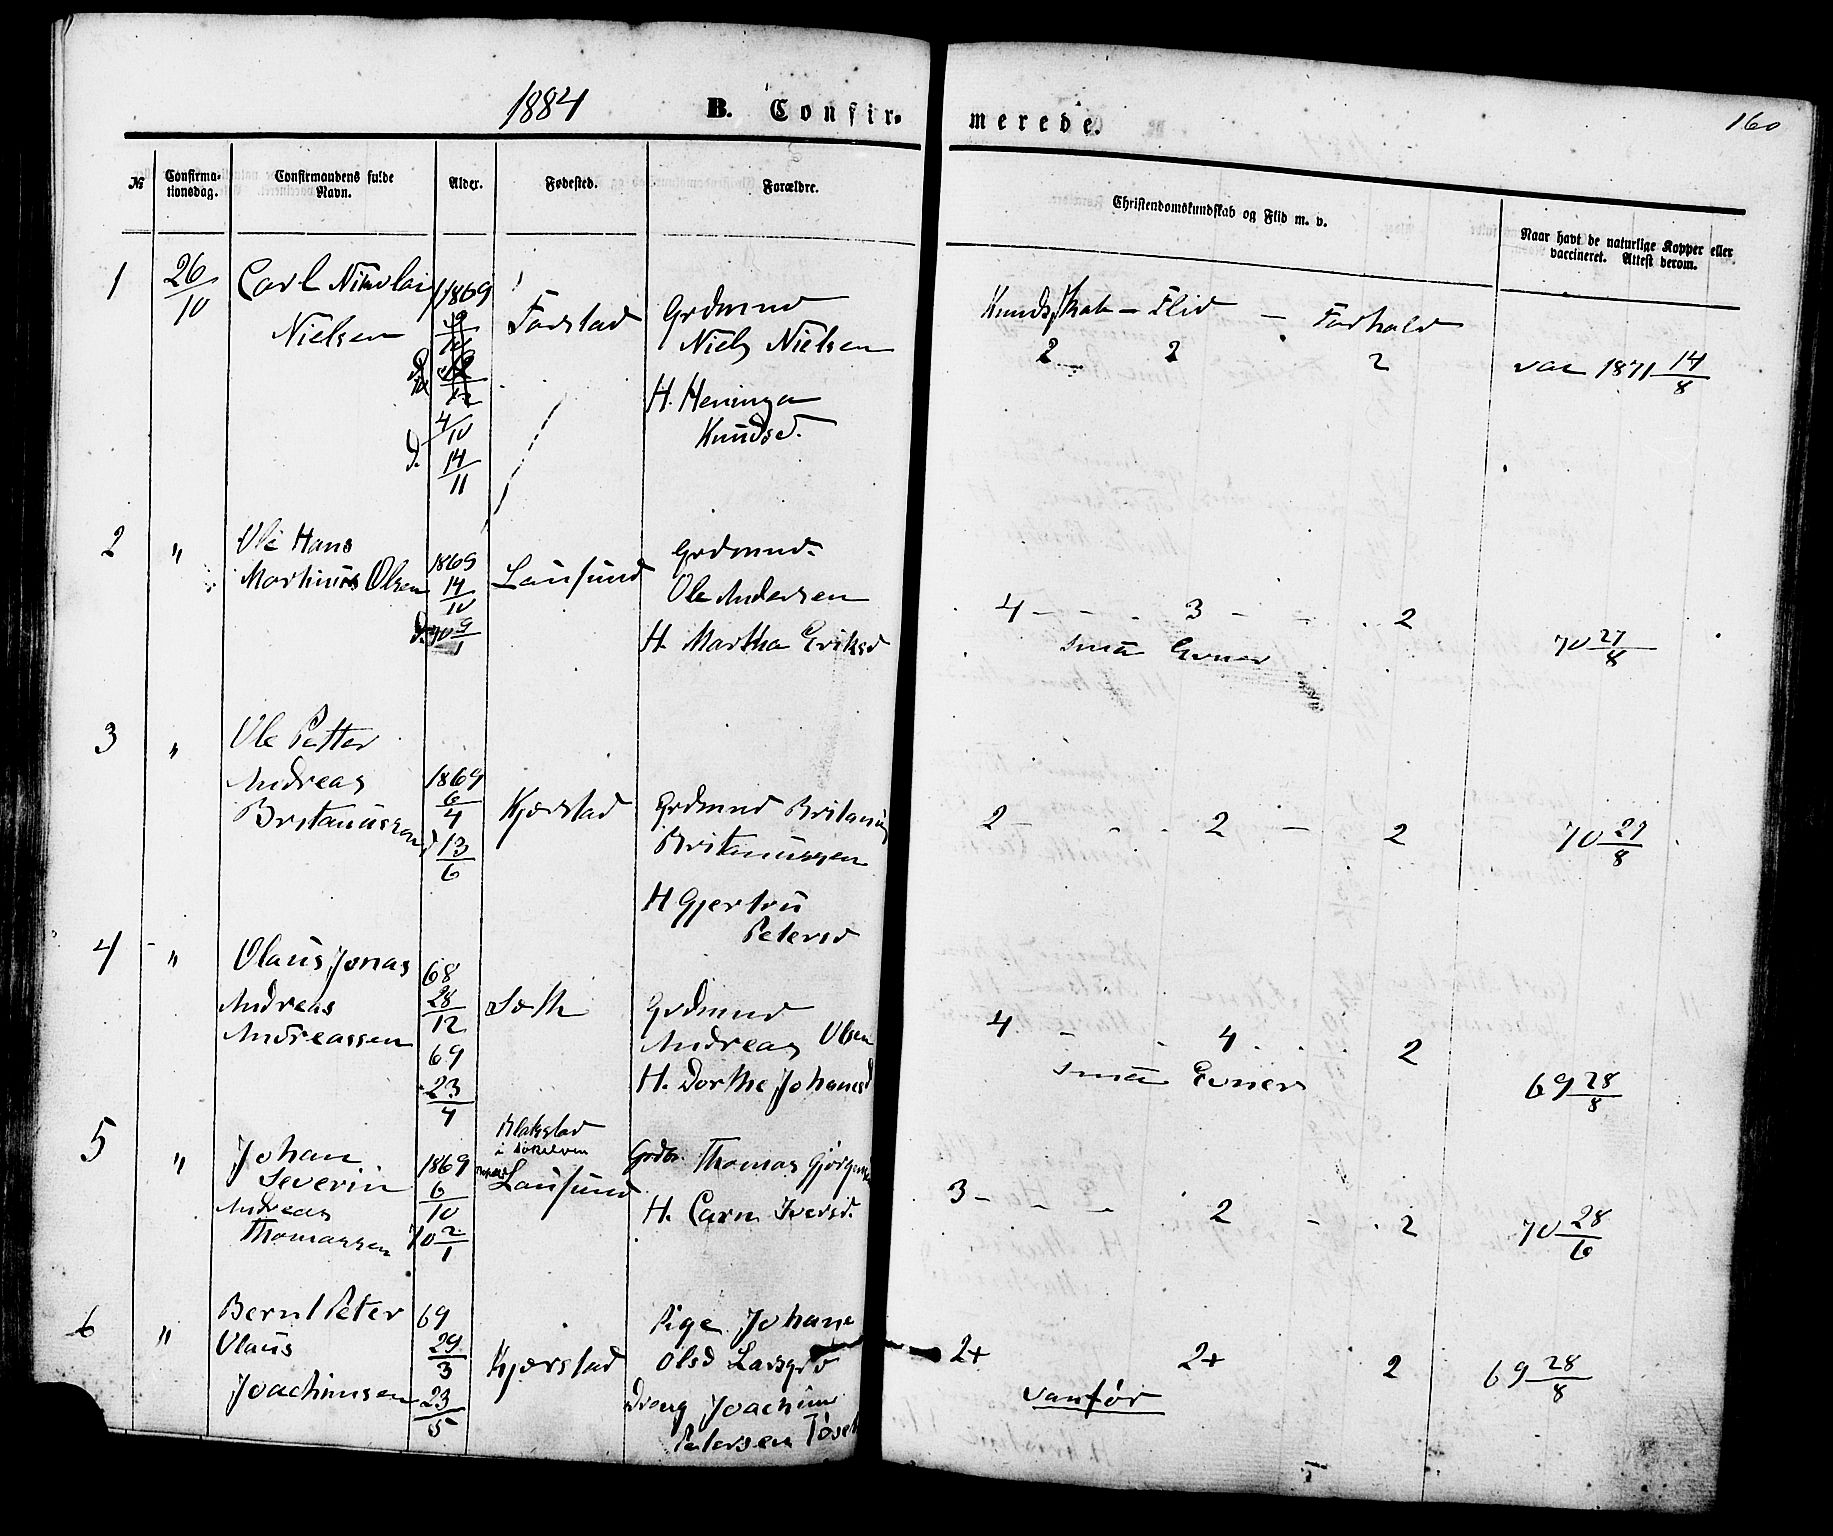 1884 B. Confirmerede. 160
№ Confirmationsdag. Confirmandens fulde Navn. Alder. Fødested. Forældre. Christendomskundskab og Flid m. v. Naar havt de naturlige Kopper eller vaccineret. Attest derom.
1 26/10 Carl Nikolai 1869
Nielsen Farstad Grdmnd
Niels Nielsen
Kundskab - Flid - Forhold
2 2 2 vac 1871 14/8
H. Heninga
Knudsd.
4/10
d. 14/11
2 " Ole Hans
Martinus Olsen 1869 14/10 Lausund Grdmnd.
Ole Andersen
d. 70 9/1 H. Martha Eriksd
4 - - 3 - 2
smaa Evner 70 27/8
3 " Ole Petter
Andreas 1869 6/4 Kjørstad Grdmnd Britanius
Britanussen d 13/6 Britanussen
H Gjertru
Petersd
2 - - 2 - 2 70 27/8
4 - " Olaus Jonas 68
Andreas 28/12 Sæth Grdmnd
Andreassen Andreas Olsen
69 23/4 H. Dorthe Johanesd
4 - - 4 - - 2
smaa Evner 69 28/8
5 " Johan
Severin 1869 6/10
Andreas
Thomassen 70 2/1
Blakstad
i
Lausund
Grdbr. Thomas
H. Carn Iversd.
3 - - - 2 - 2 70 28/6
6 " Bernt Peter 69
Olaus 29/3 Kjørstad
Joachimsen 23/5
Pige Johane
Olsd
Dreng Joachim
Petersen
2+ 2+ 2 69 28/8
vanfør